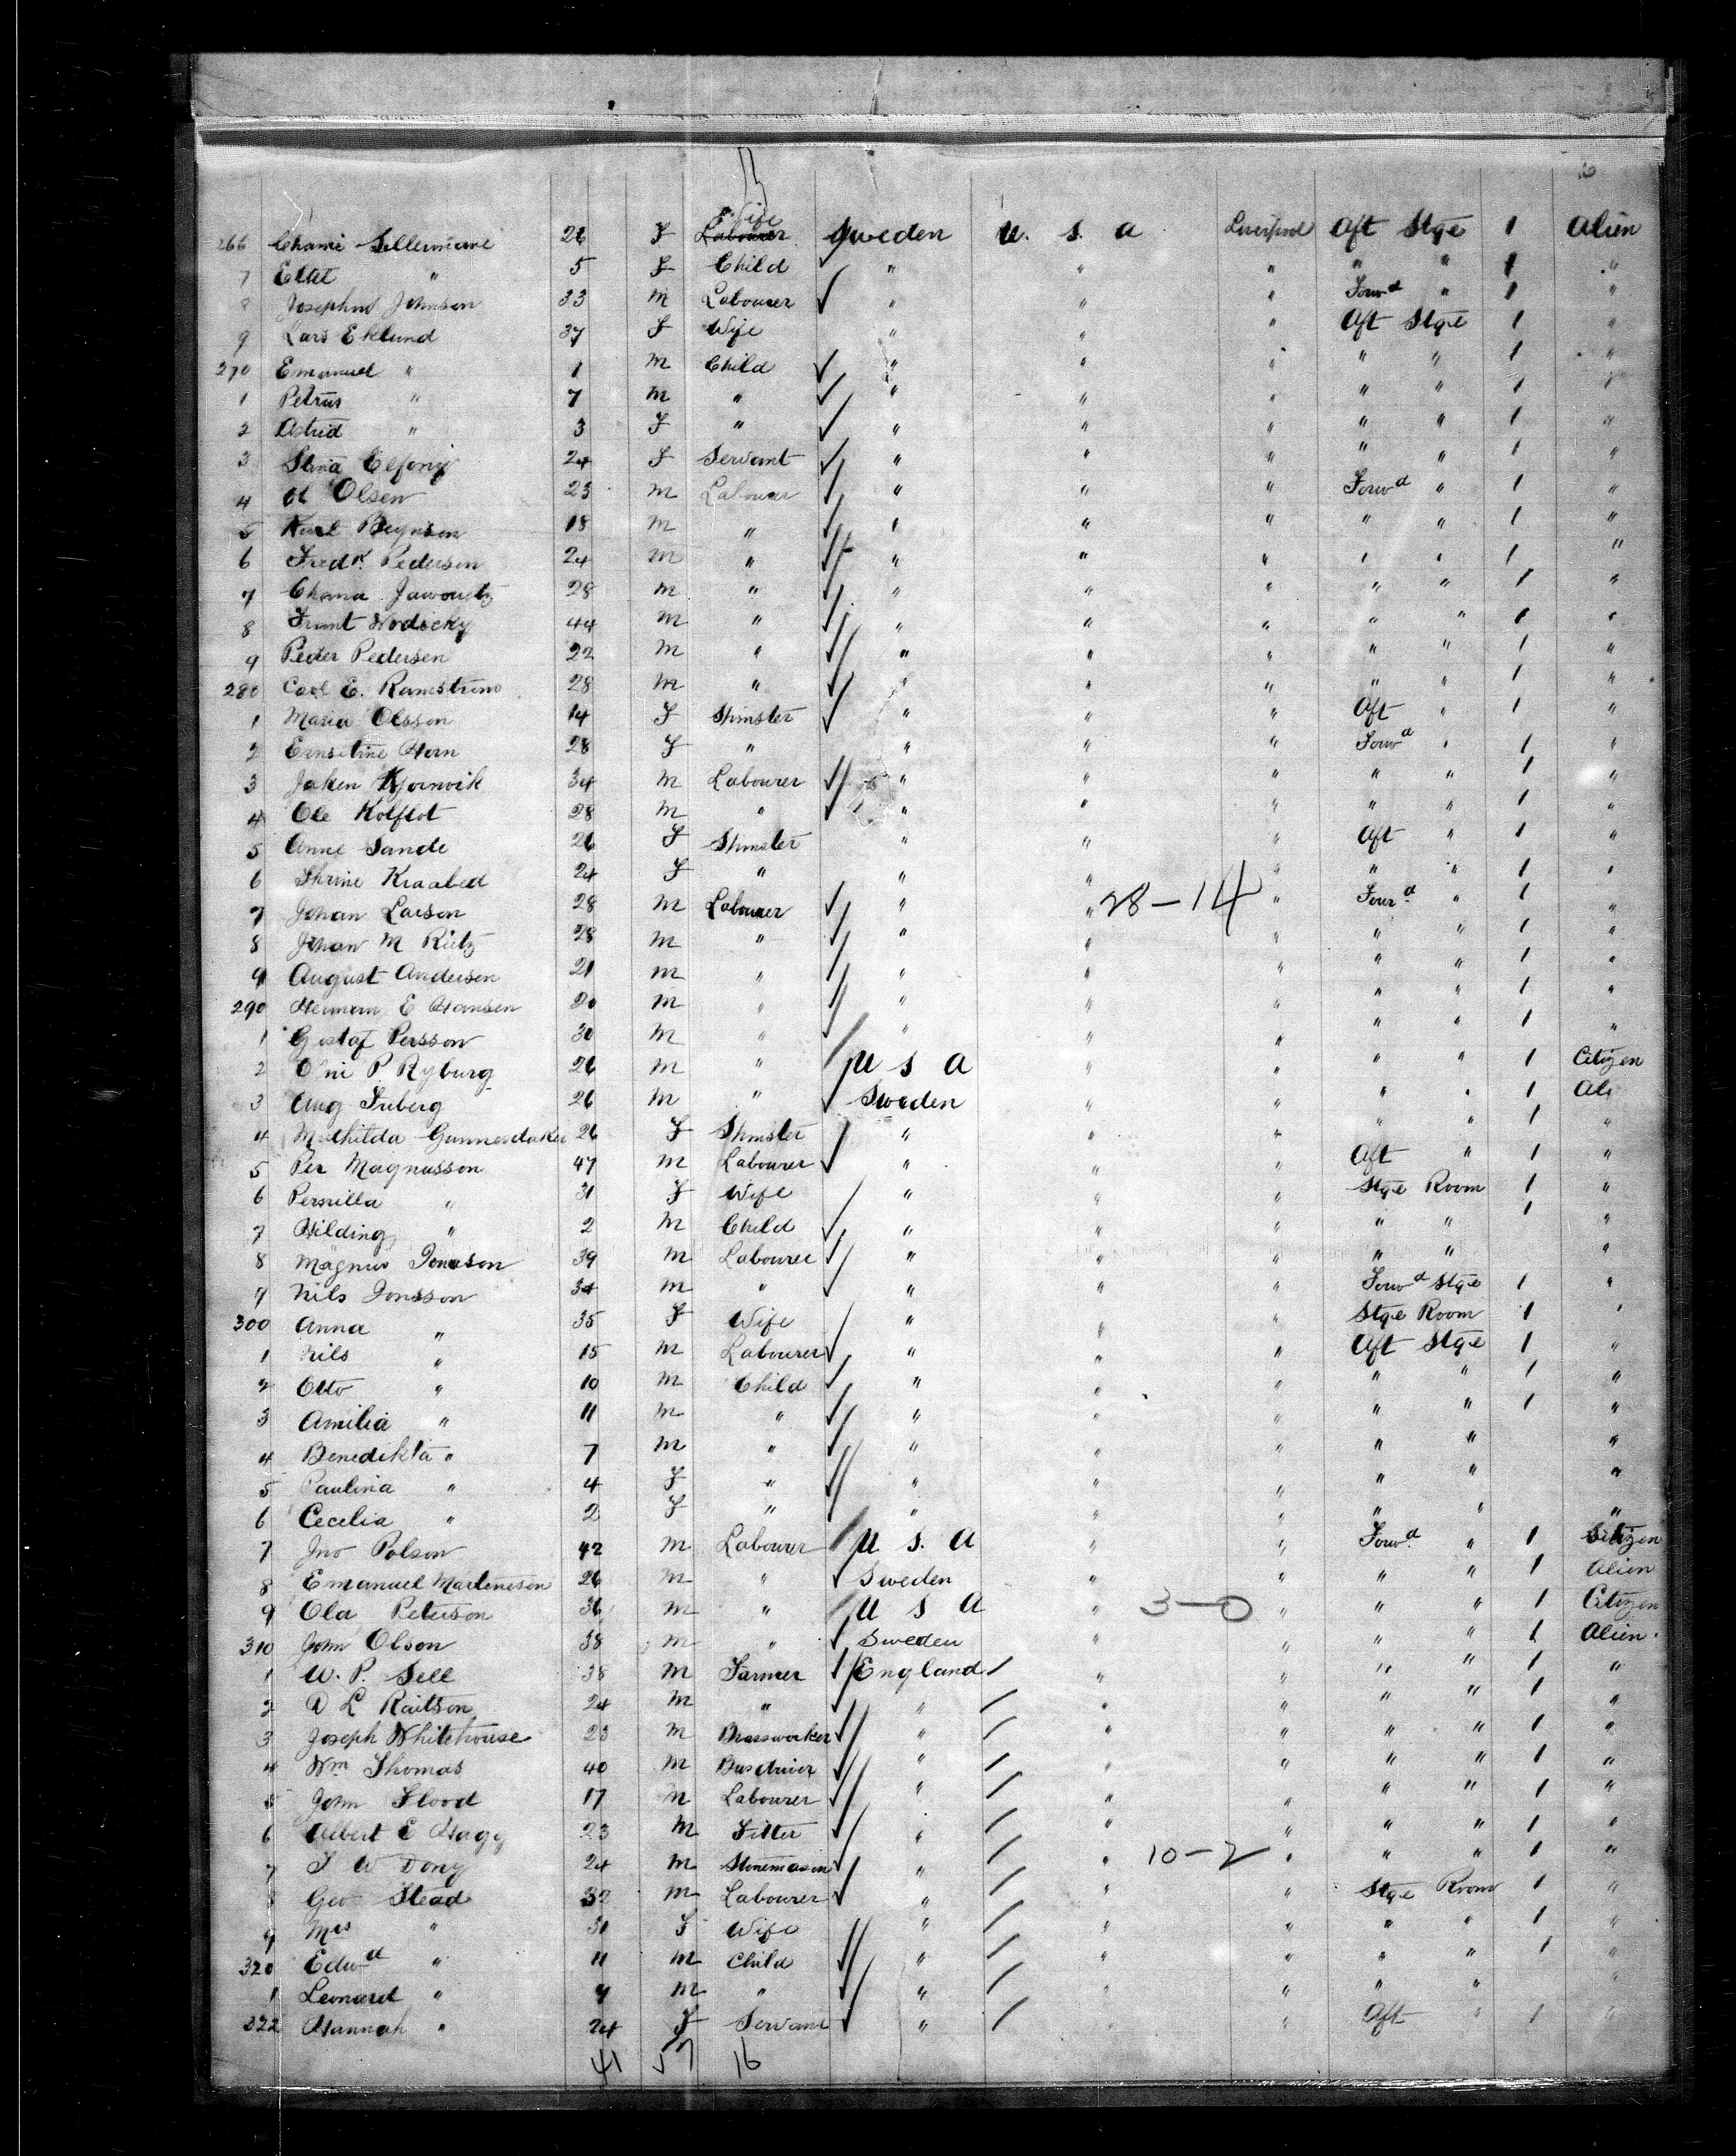 13
Wife
266 Chami Sillermane 26 F Labourer Sweden U. S. A Liverpool Aft Stge 1 Alien
7 Etat " 5 F Child " " " " " 1 "
8 Josephus Johnson 33 M Labourer " " " Forwd " 1 "
9 Lars Eklund 37 F Wife " " " Aft Stge 1 "
270 Emanuel " 1 M Child " " " " " 1 "
1 Petrus " 7 M " " " " " " 1 "
2 Astrid " 3 F " " " " " " 1 "
3 Stina 24 F Servant " " " " " 1 "
4 Ol Olsen 23 M Labourer " " " Forwd " 1 "
5 Karl 18 M " " " " " " 1 "
6 Fredk. Pedersen 24 M " " " " " " 1 "
7 Chama 28 M " " " " " " 1 "
8 44 M " " " " " " 1 "
9 Peder Pedersen 22 M " " " " " " 1 "
280 Carl E. 28 M " " " " " " 1 "
1 Maria Olsson 14 F Spinster " " " Aft " 1 "
2 Ernsetine Horn 28 F " " " " Forwd " 1 "
3 Jaken Kjornvik 34 M Labourer " " " " " 1 "
4 Ole Kolflot 28 M " " " " " " 1 "
5 Anne Sande 26 F Spinster " " " Aft " 1 "
6 Thrine Kraabed 24 F " " " " " " 1 "
7 Johan Larson 28 M Labourer " " 28-14 " Forwd " 1 "
8 Johan M Rietz 28 M " " " " " " 1 "
9 August Andersen 21 M " " " " " " 1 "
290 Herman E Hansen 20 M " " " " " " 1 "
1 Gustaf Persson 30 M " " " " " " 1 "
2 P Ryburg 26 M " U S A " " " " 1 Citizen
3 Aug Friberg 26 M " Sweden " " " " 1 Ali
4 Mathilda 26 F Spinster " " " " " 1 "
5 Per Magnusson 47 M Labourer " " " Aft " 1 "
6 Pernilla " 31 F Wife " " " Stge Room 1 "
7 Hilding " 2 M Child " " " " " 1 "
8 Magnus Jonason 39 M Labourer " " " " " "
9 Nils Jonsson 34 M " " " " Forwd Stge 1 "
300 Anna " 35 F Wife " " " Stge Room 1 "
1 Nils " 15 M Labourer " " " Aft Stge 1 "
2 Otto " 10 M Child " " " " " 1 "
3 Amilia " 11 M " " " " " " 1 "
4 Benedikta " 7 M " " " " " " "
5 Paulina " 4 F " " " " " " "
6 Cecelia " 2 F " " " " " " "
7 Jno Polson 42 M Labourer U S. A " " Forwd. " 1 Citizen
8 Emanuel Martineson 26 M " Sweden " " " " 1 Alien
9 Ola Peterson 36 M " U S A " 3-0 " " " 1 Citizen
310 John Olson 38 M " Sweden " " " " 1 Alien.
1 W. P. Sell 38 M Farmer England " " " " 1 "
2 A L Raitson 24 M " " " " " " 1 "
3 Joseph Whitehouse 23 M Brassworker " " " " " 1 "
4 Wm Thomas 40 M Busdriver " " " " " 1 "
5 John Flood 17 M Labourer " " " " " 1 "
6 Albert E Hagg 23 M Fitter " " " " " 1 "
7 J W Dony 24 M Stonemason " " 10-2 " " " 1 "
8 Geo Stead 32 M Labourer " " " Stge Room 1 "
9 Mrs " 31 F Wife " " " " " 1 "
320 Edwd " 11 M Child " " " " " 1 "
1 Leonard " 9 M " " " " " " "
322 Hannah " 24 F Servant " " Aft " 1 "
41 57 16